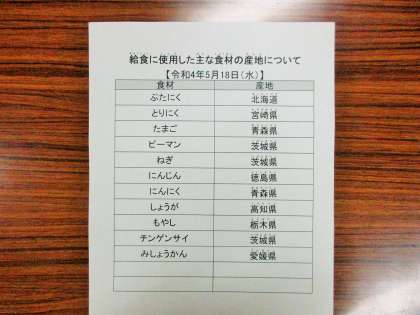 給食に使用した主な食材の産地について
【令和4年5月18日(水)】
食材 産地
ぶたにく 北海道
とりにく 宮崎県
たまご 青森県
ピーマン 茨城県
ねぎ 茨城県
にんじん 徳島県
にんにく 青森県
しょうが 高知県
もやし 栃木県
チンゲンサイ 茨城県
みしょうかん 愛媛県